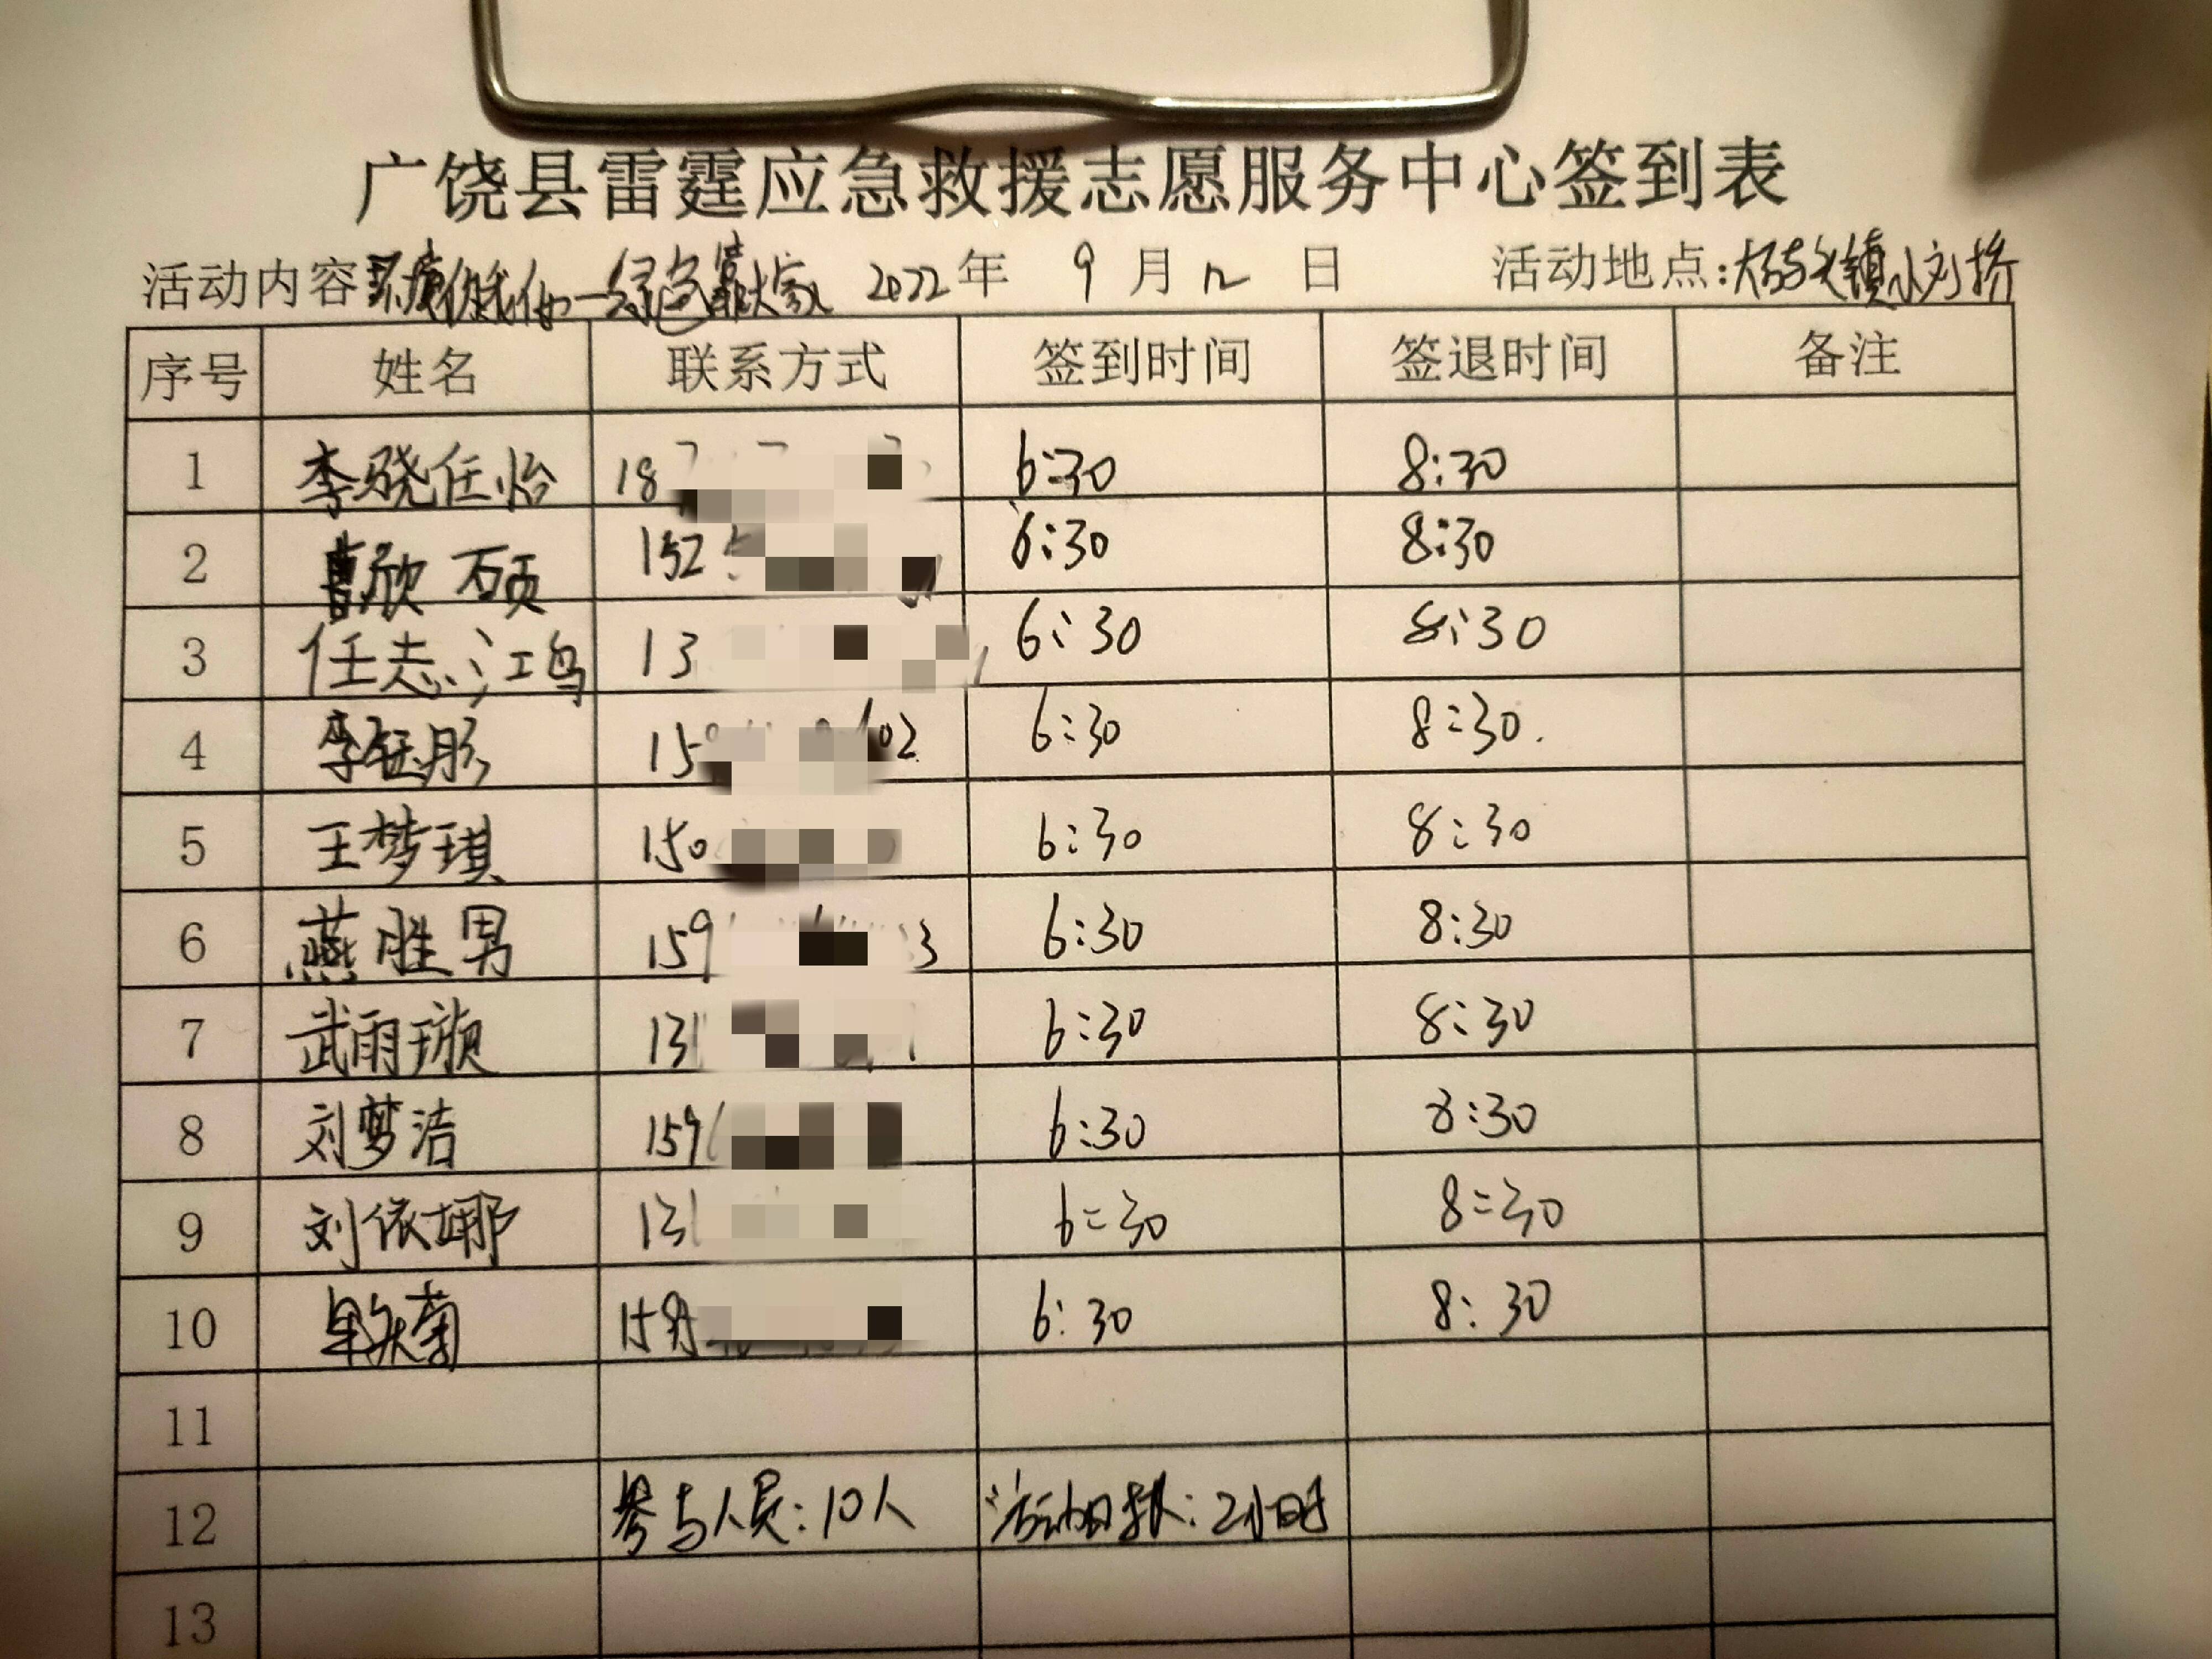 广饶县雷霆应急救援志愿服务中心签到表
活动内容 环境你我他一绿色靠大家 2022年 9月12日 活动地点:大码头镇小刘桥
序号 姓名 联系方式 签到时间 签退时间 备注
1 李骁任怡 18 6:30 8:30
2 曹欣硕 152 6:30 8:30
3 任志鸿 13 6:30 8:30
4 李钰彤 15 02 6:30 8:30.
5 王梦琪 150 6:30 8:30
6 燕胜男 159 3 6:30 8:30
7 武雨璇 131 6:30 8:30
8 刘梦洁 159 6:30 8:30
9 刘依娜 131 6:30 8:30
10 6:30 8:30
11
12 参与人员:10人 活动时长:2小时
13